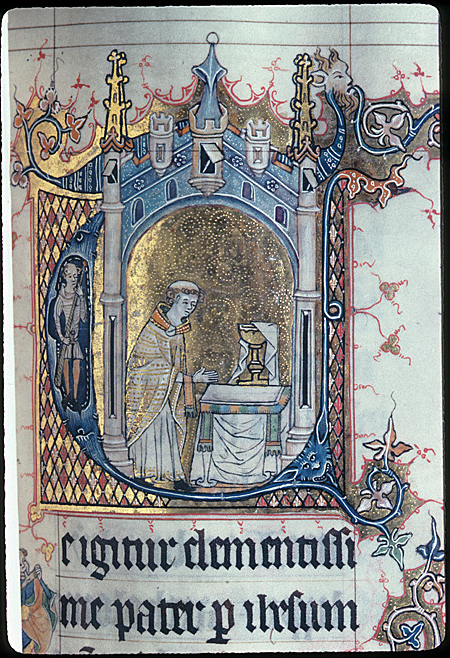 e igitur clementissi
me pater p ihesum